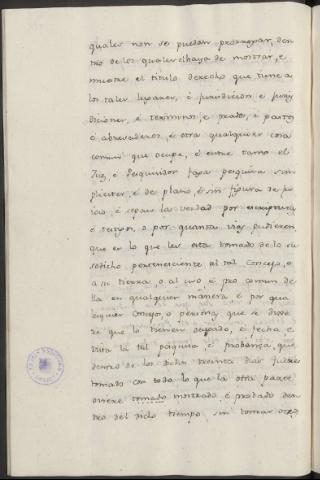 quales non se puedan prorrogar, den
tro de los quales el haya de mostrar, e
muestre el titulo derecho que tiene a
los tales lugares, é jurisdicion, é juris
diciones, é terminos, e prados, é pastos
é abrevaderos, é otra qualquier cosa
comun que ocupe, é entre tanto el
Juez, é Pesquisidor faga pesquisa sim
pliciter, é de plano, é sin figura de ju
icio, é sepan la verdad por escripturas
é testigos, o por quantas vias pudieren,
que es lo que les está tomado de lo su
sodicho perteneciente al tal Concejo, o
a su tierra, o al uso, é pro comun de
lla en qualquier manera é por qua
lesquier Concejo, o persona, que se dixere
de que lo tienen ocupado, é fecha e
vista la tal pesquisa, é probanza, que
dentro de los dichos treinta dias fuere
tomado con todo lo que la otra parte
oviere tomado mostrado é probado den
tro del dicho tiempo sin tomar otro